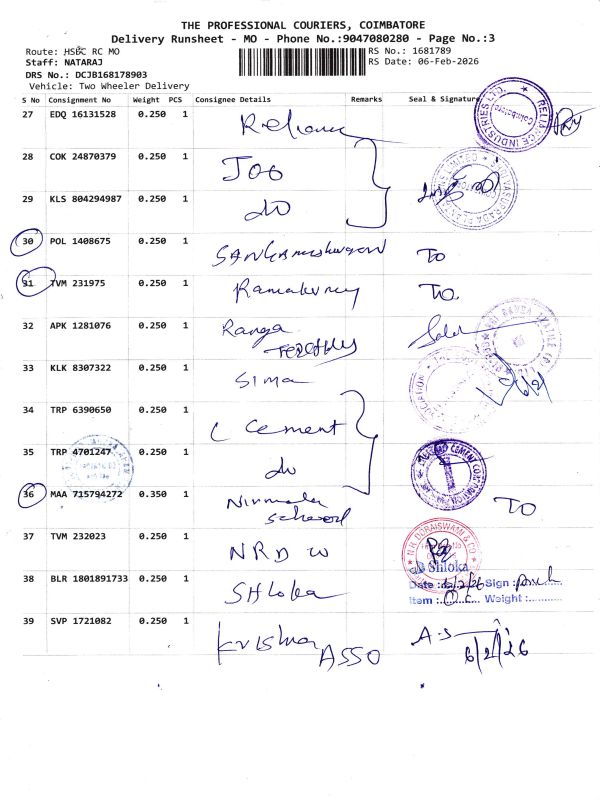 THE PROFESSIONAL COURIERS, COIMBATORE
Delivery Runsheet - MO - Phone No.:9047080280 - Page No.:3
Route: HSBC RC MO
RS No.: 1681789
Staff: NATARAJ
RS Date: 06-Feb-2026
DRS No.: DCJB168178903
Vehicle: Two Wheeler Delivery
S No Consignment No Weight PCS Consignee Details Remarks Seal & Signature
27 EDQ 16131528 0.250 1 Reliance RELIANCE INDUSTRIES LTD. Coimbatore
28 COK 24870379 0.250 1
29 KLS 804294987 0.250 1 do
30 POL 1408675 0.250 1 To
31 TVM 231975 0.250 1 To
32 APK 1281076 0.250 1 Ranga
33 KLK 8307322 0.250 1 Sima
34 TRP 6390650 0.250 1 C Cement
35 TRP 4701247 0.250 1 do CEMENT CORPORATION
36 MAA 715794272 0.350 1 Nirmala School To
37 TVM 232023 0.250 1 NRD N.R. DORAISWAMI & CO
38 BLR 1801891733 0.250 1 SHloka Shloka
Date : 6/2/26 Sign :
Item : Weight :
39 SVP 1721082 0.250 1 Krishna ASSO A.S
6/2/26